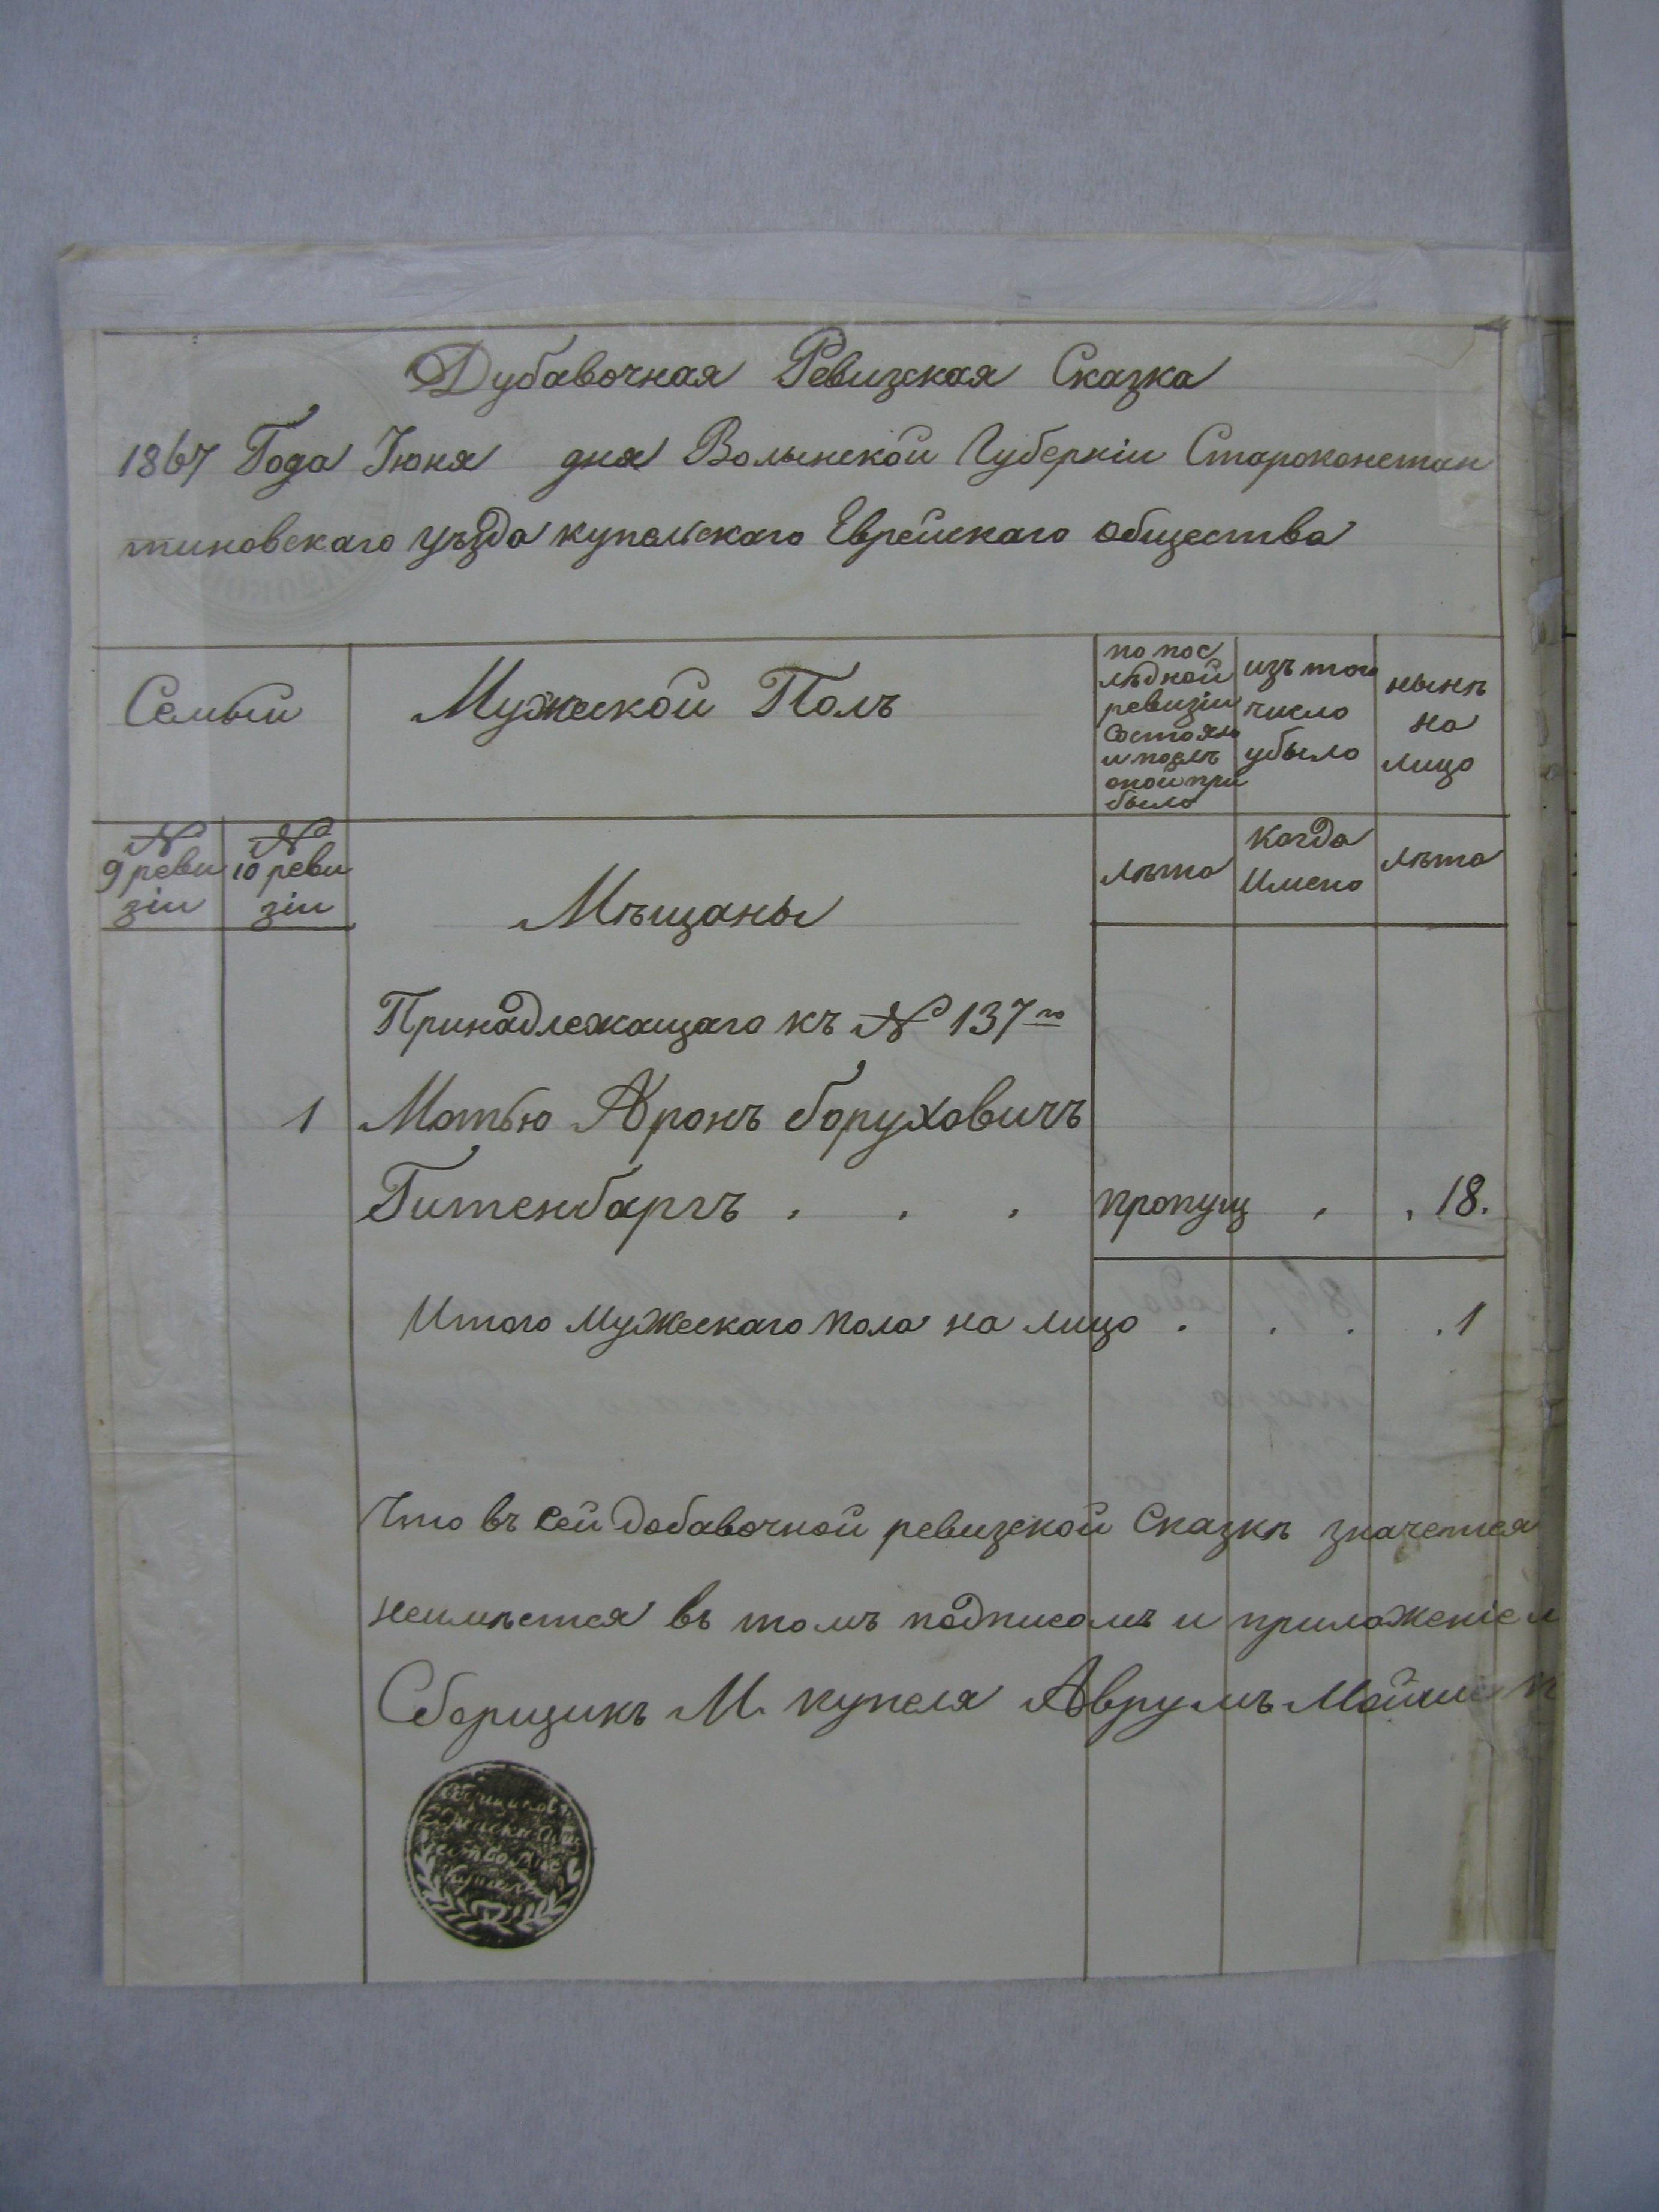 Дубавочная Ревизская Сказка
1867 Года Іюня дня Волынской Губерніи Староконстан
тиновскаго уѣзда купельскаго Еврейскаго общества
Семьи
Мужеской Полъ
по пос
лѣдной
ревизіи
Состояло
и послѣ
оной при
было
изъ того
число
убыло
нынѣ
на
лицо
№
9 реви
зіи
№
10 реви
зіи
Мѣщаны
лѣта
когда
имено
лѣта
Принадлежащаго къ № 137го
1 Мотью Аронъ боруховичъ
Гитенбаргъ . . . пропущ . . 18.
Итого мужескаго пола на лицо . . . . 1
Что въ сей добавочной ревизской Сказкѣ значется
неимѣется въ томъ подписомъ и приложеніем
Сборщикъ М. купеля Аврумъ